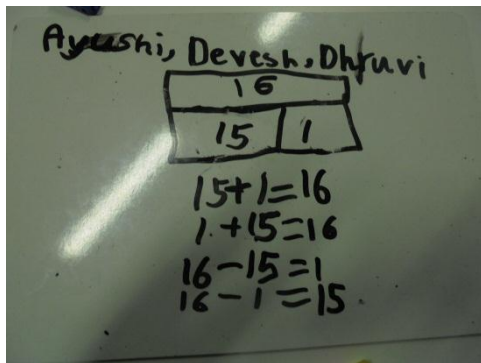 Ayushi, Devesh, Dhruvi
16
15 1
15+1=16
1+15=16
16-15=1
16-1=15